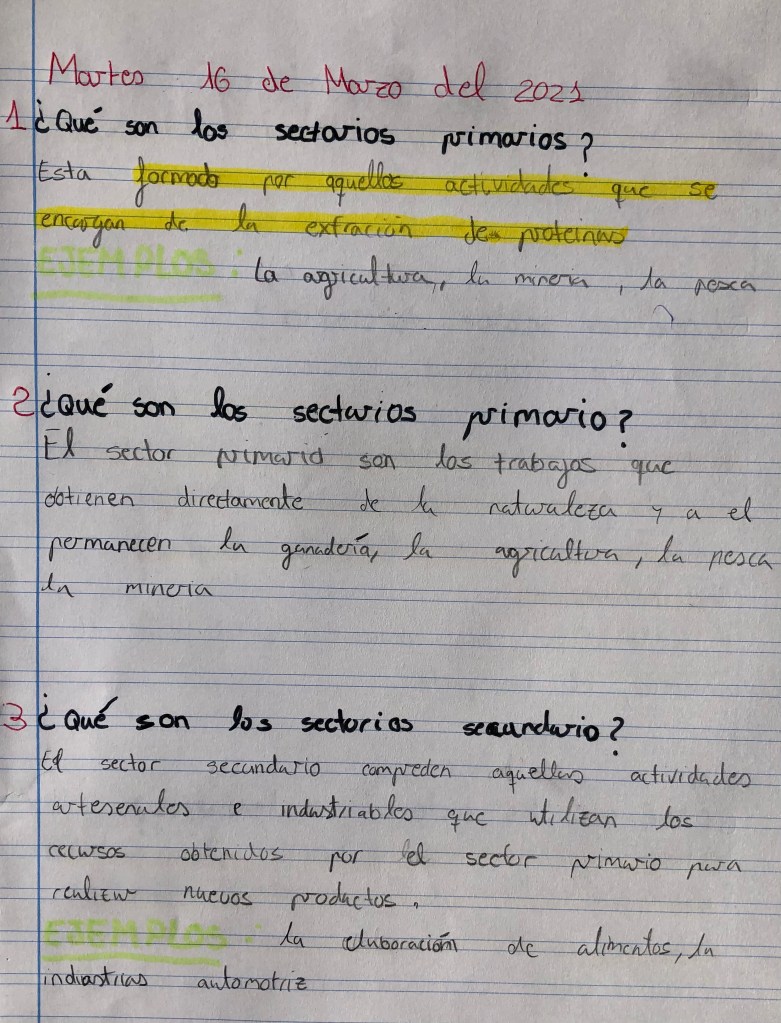 Martes 16 de Marzo del 2021
1 ¿Qué son los sectarios primarios?
Esta formado por aquellos actividades que se
encargan de la extración de proteinas
EJEMPLOS: La agricultura, la mineria, la pesca
2 ¿Qué son los sectarios primario?
El sector primario son los trabajos que
obtienen directamente de la naturaleza y a el
permanecen la ganadería, la agricaltura, la pesca
la mineria
3 ¿Qué son los sectorios secundario?
El sector secundario compreden aquellas actividades
artesenales e industriables que utilizan los
recursos obtenidos por el sector primario para
realizar nuevos productos.
EJEMPLOS: la elaboración de alimentos, la
automotriz